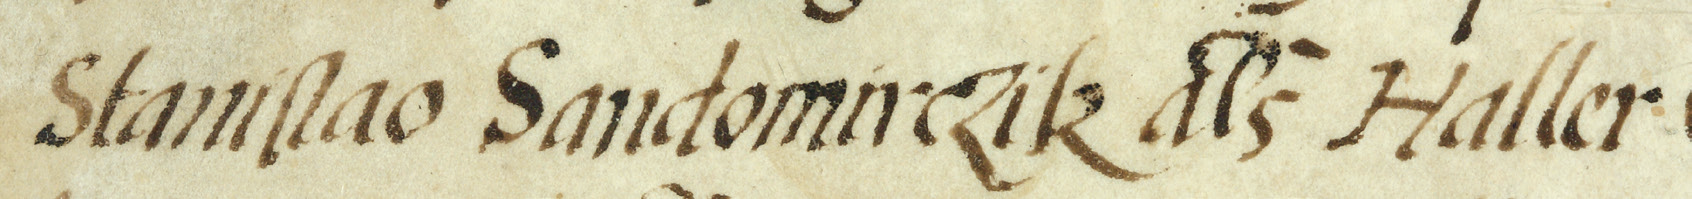 Stanislao Sandomirczik als Haller